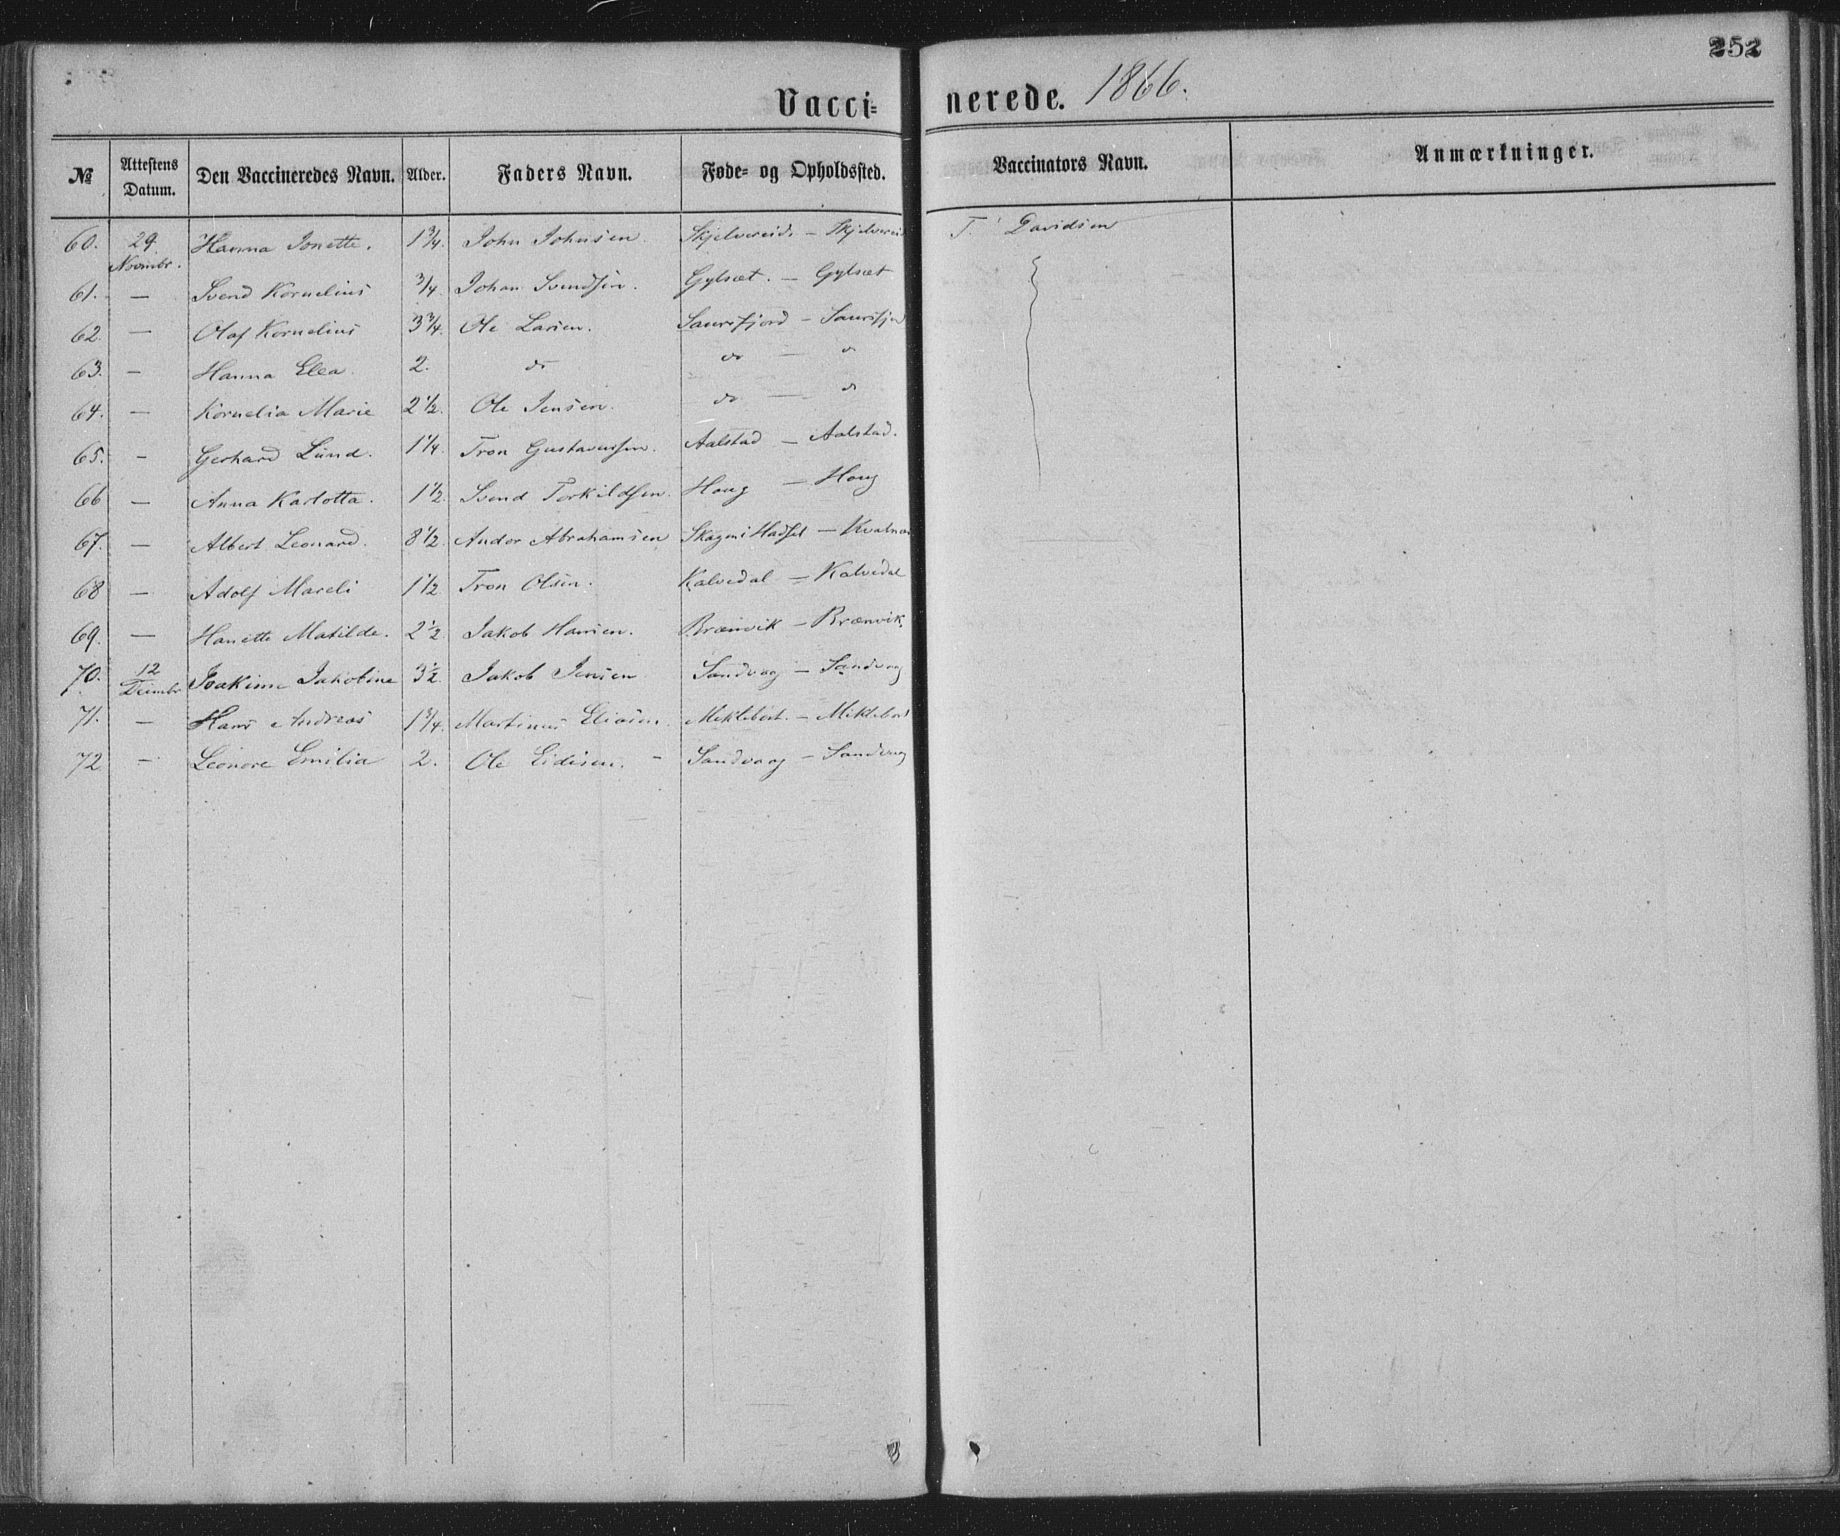 252
Vacci= nerede. 1866.
№ Attestens Datum. Den Vaccineredes Navn. Alder. Faders Navn. Føde= og Opholdssted. Vaccinators Navn. Anmærkninger.
60. 29. Novembr. Hanna Jonette. 1 3/4. John Johnsen. Skjelvereid. — T. Davidsen
61. — Svend Kornelius 3/4. Johan Svendsen. Gylsæt. — Gylsæt
62. — Olaf Kornelius 3 3/4. Ole Larsen. Saursfjord — Saursfjor
63. — Hanna Elea. 2. do do — do
64. — Kornelia Marie 2 1/2. Ole Jensen. do — do
65. — Gerhard Lund. 1 1/4. Tron Gustavussen. Aalstad — Aalstad.
66 — Anna Karlotta. 1 1/2. Svend Torkildsen. Houg — Houg
67. — Albert Leonard. 8 1/2. Andor Abrahamsen Skagen i Hadsel —
68 — Adolf Mareli 1 1/2 Tron Olsen. Kalvedal — Kalvedal
69. — Hanette Matilde. 2 1/2. Jakob Hansen. Brænvik — Brænvik.
70. 12 Decembr Joakime Jakobine 3 1/2. Jakob Jensen Sandvaag — Sandvaag
71. — Hans Andreas 1 3/4. Martinus Eliasen. Miklebost. — Miklebost
72 — Leonore Emilia 2. Ole Eidisen. — Sandvaag — Sandvaag